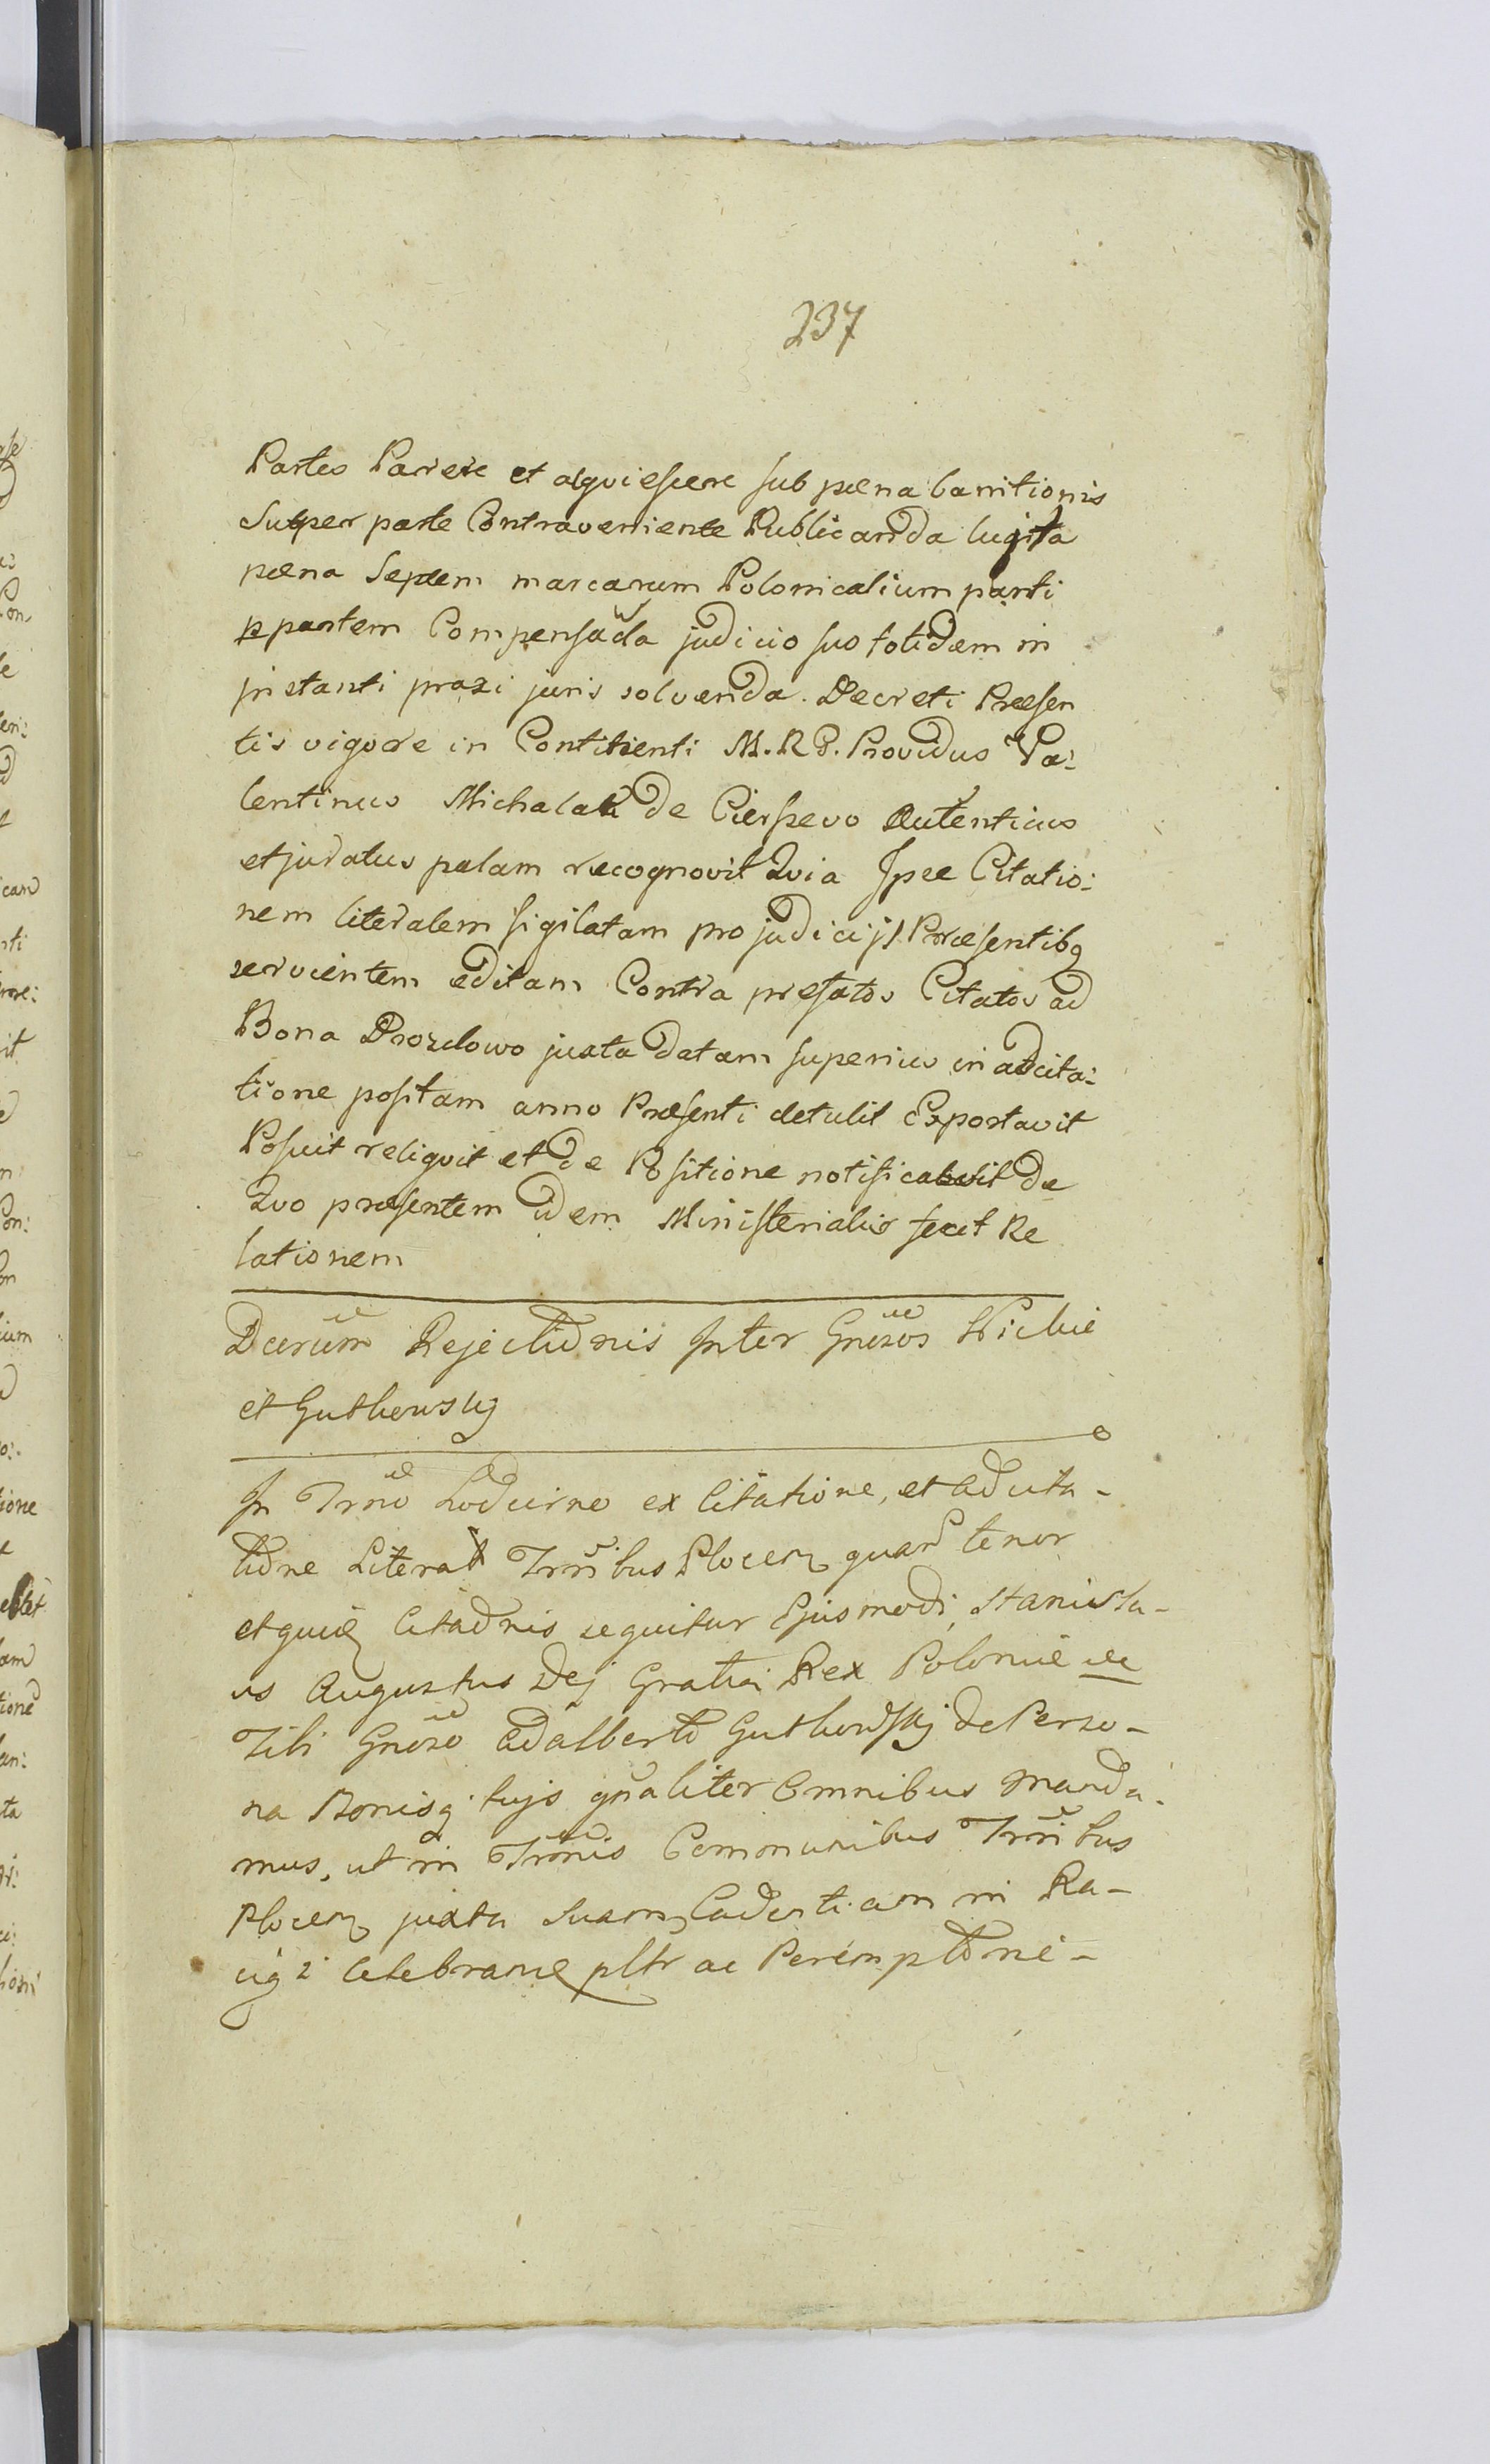 237
Partes Parere et alquiescere sub pœna banitionis
Super parte Contraveniente Publicanda lugita
pœna Septem marcarum Polonicalium parti
p partem Compensãda judicio suo totidem in
instanti praxi juris solvenda. Decreti Præsen
tis vigore in Contitienti M. R P. Providus Va:
lentinus Michalak de Cierpevo Autenticus
et juratus palam recognovit Quia Ipse Citatio:
nem literalem sigilatam pro judicijs Præsentibq
servientem editam Contra prefatos Citatos ad
Bona Drozdowo juxta datam superius in adcita:
tione positam anno Præsenti detulit Exportavit
Posuit reliquit et de Positione notificabit de
Quo presentem idem Ministerialis fecit Re
lationem
Dcerum Rejectionis Inter Gnosos Wickie
et Gutkowskj
In Trno Hodierno ex Citatione, et adcita-
tione Literat Trribus Plocen quar tenor
et Citaonis sequitur Ejusmodi, Stanisla-
us Augustus Dej Gratia Rex Polonie etc
Tibi Gnoso Adalberto Gutkowskj de Perso-
na Bonisq tujs gnaliter Omnibus Manda-
mus, ut in Trmis Communibus Trribus
Plocen juxta Suam Cadentiam in Ra-
ciąż Celebrane pltr ac Peremptorie-